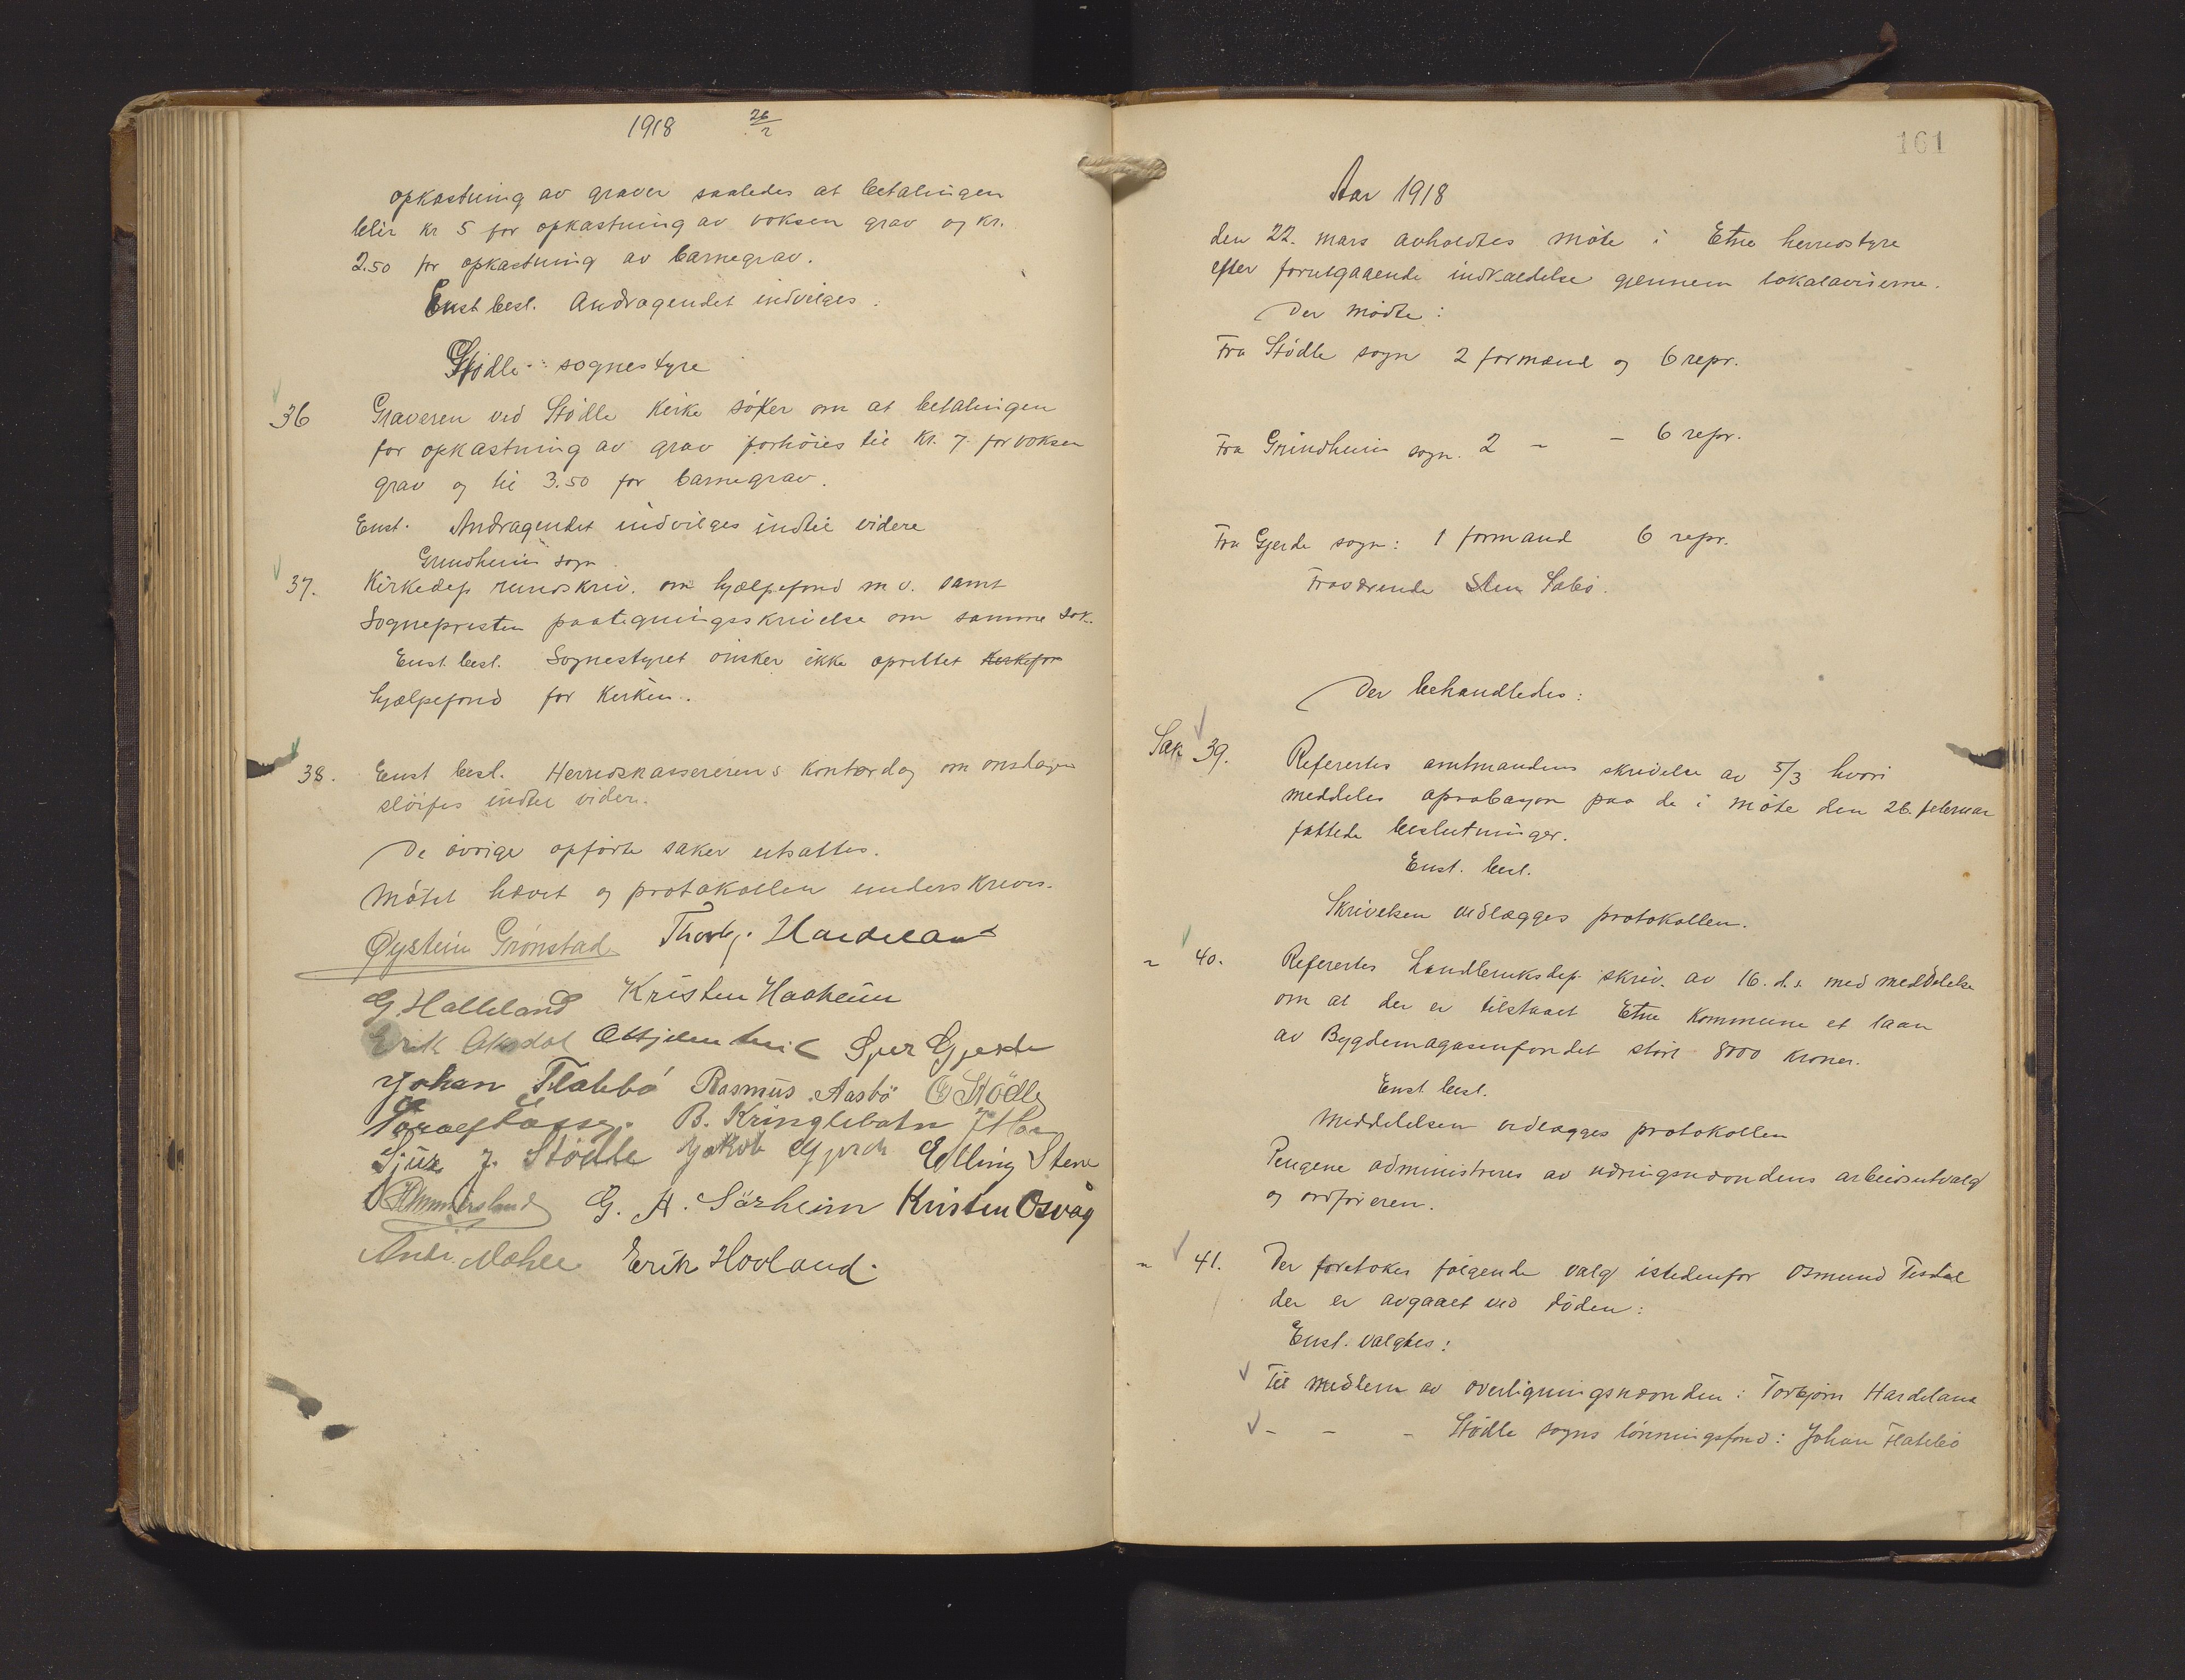 1918 26/2
opkastning av graver saaledes at betalingen
blir kr 5 for opkastning av voksen grav og kr.
2.50 for opkastning av barnegrav.
Enst besl. Andragendet indvilges.
Stødle sognestyre
36 Graveren ved Stødle Kirke søker om at betalingen
for opkastning av grav forhøies til Kr. 7 for voksen
grav og til 3.50 for barnegrav.
Enst. Andragendet indvilges indtil videre
Grindheim sogn.
37. Kirkedep rundskriv. om hjælpefond m v. samt
Sognepresten paategningsskrivelse om samme sak.
Enst. besl. Sognestyret ønsker ikke oprettet Kirkefon
hjælpefond for Kirken.
38. Enst besl. Herredskassererens kontordag om onsdagen
sløifes indtil videre.
De øvrige opførte saker utsattes.
Møtet hævet og protokollen underskreves.
Øystein Grønstad Thorbj. Hardeland
G. Halleland Kristen Haaheim
Erik Aksdal Sjur Gjerde
Johan Flatebø Rasmus Aasbø O Stödle
B. Kringlebotn
Sjur J. Stödle Jakob Gjerde Elling Stene
G. A. Särheim Kristen Osvåg
Erik Hovland.
161
Aar 1918
den 22. mars avholdtes møte i Etne herredstyre
efter forutgaaende indkaldelse gjennem lokalaviserne.
Der mødte:
Fra Stødle sogn 2 formænd og 6 repr.
Fra Grindheim sogn. 2 - - 6 repr.
Fra Gjerde sogn: 1 formand 6 repr.
Fraværende Sten Sæbø.
Der behandledes:
Sak 39. Refererdes amtmandens skrivelse av 5/3 hvori
meddeles aprobasjon paa de i møte den 26. februar
fattede beslutninger.
Enst. besl.
Skrivelsen vedlægges protokollen.
" 40. Refererdes Landbruksdep. skriv. av 16. d.s. med meddelelse
om at der er tilstaaet Etne Kommune et laan
av Bygdemagasinfondet stort 8000 kroner.
Enst besl.
Meddelelsen vedlægges protokollen
Pengene administreres av næringsnævndens arbeidsutvalg
og ordføreren.
" 41. Der foretokes følgende valg istedenfor Osmund Tesdal
der er avgaaet ved døden:
Enst. valgtes:
Til medlem av overligningsnævnden: Torbjørn Hardeland
- - - Stødle sogns lønningsfond: Johan Flatebø